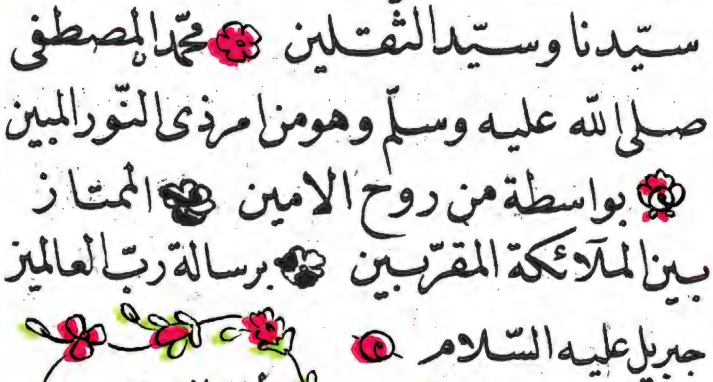 سيّدنا وسيّد الثّقلين محمّد المصطفى
صلى الله عليه وسلّم وهو من امر ذى النّور المبين
بواسطة من روح الامين الممتاز
بين الملآئكة المقرّبين برسالة ربّ العالمين
جبريل عليه السّلام